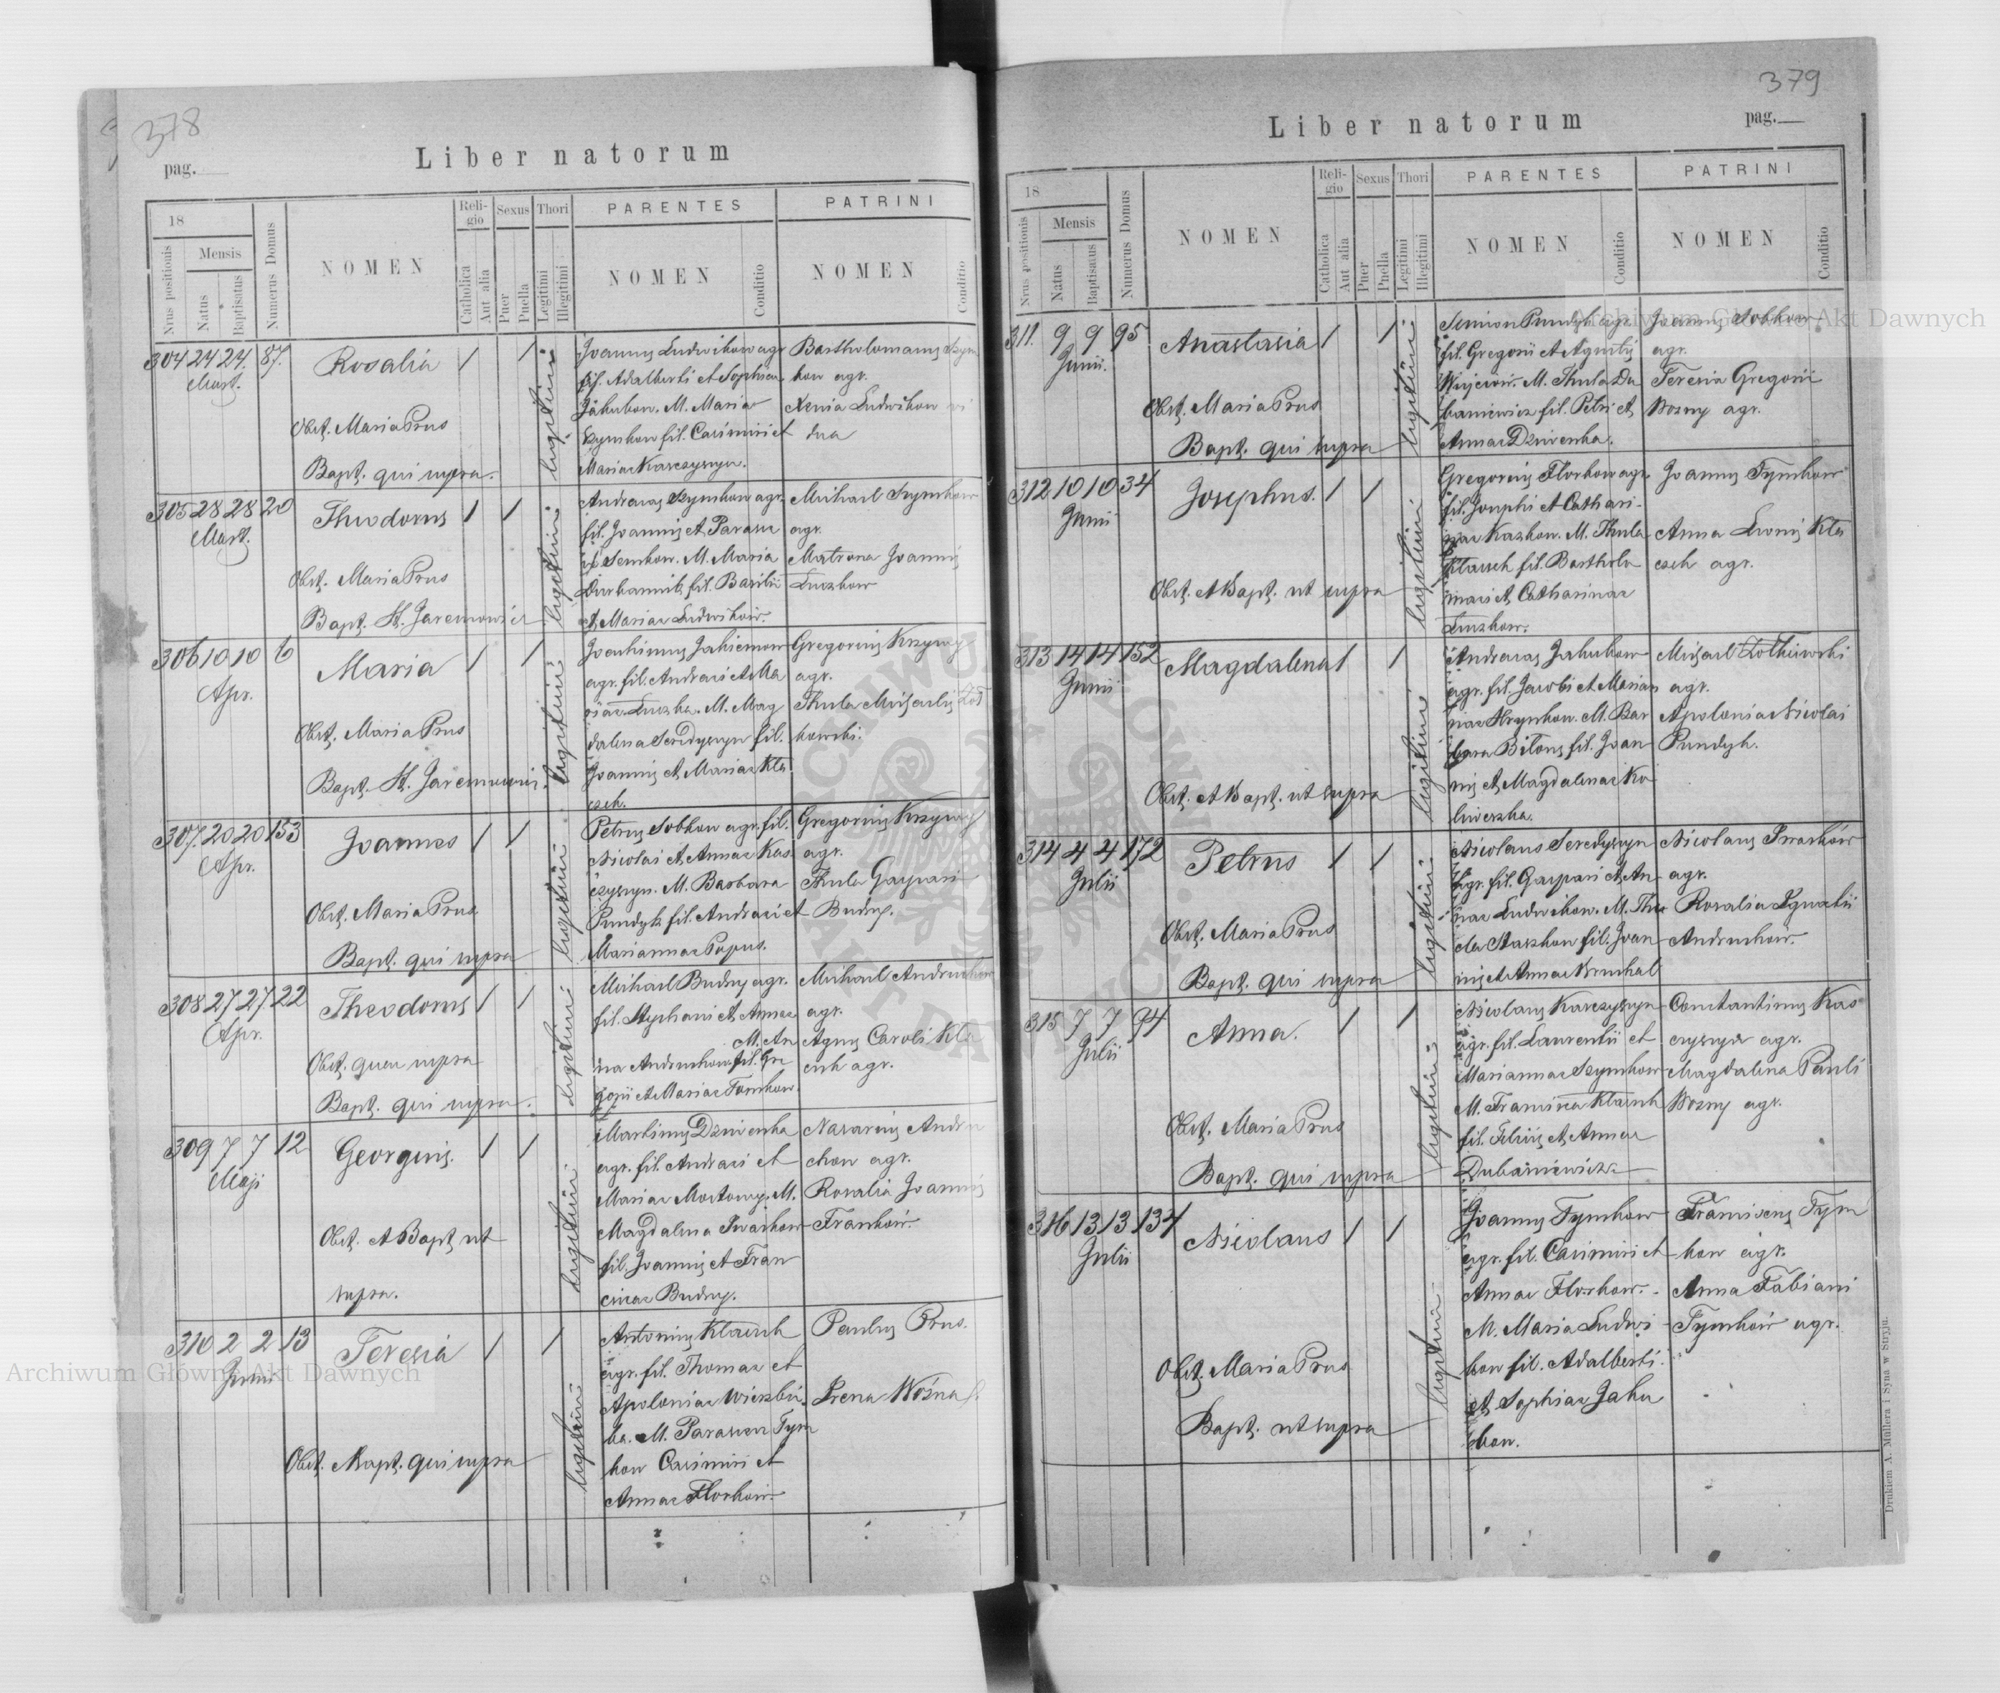 378
pag.
Liber natorum
18
Nrus positionis
Mensis
Natus
Baptisatus
Numerus Domus
NOMEN
Reli-
gio
Catholica
Aut alia
Sexus
Puer
Puella
Thori
Legitimi
Illegitimi
PARENTES
NOMEN
Conditio
PATRINI
NOMEN
Conditio
304 24 24. 87.
Mart.
Rosalia
Obst. Maria Prus
Bapt. qui supra.
legitimi
Joannes Ludwikow agr.
fil. Adalberti et Sophiae
Jakubow. M. Maria
Szymkow fil. Casimiri et
Mariae Karczyszyn.
Bartholomaeus Szym
kow agr.
Xenia Ludwikow vi
dua
305 28 28 20
Mart.
Theodorus
Obst. Maria Prus
Bapt. H. Jaremowicz
legitimi
Andreas Szymkow agr.
fil. Joannis et Parasce
Semkow. M. Maria
fil. Basilii
et Mariae Ludwikow.
Michael Szymkow
agr.
Matrona Joannis
Luczkow
306 10 10 6
Apr.
Maria
Obst. Maria Prus
Bapt. H. Jaremowicz.
legitimi
Joachimus
agr. fil. Andreae et Ma
riae Luczka. M. Mag
dalena Seredyszyn fil.
Joannis et Mariae Kla
czek.
Gregorius Krzywy
agr.
Thecla Michaelis Żoł
kowski.
307. 20 20 153
Apr.
Joannes
Obst. Maria Prus
Bapt. qui supra
legitimi
Petrus Sobkow agr. fil.
Nicolai et Annae Kar
czyszyn. M. Barbara
Pundyk fil. Andreae et
Mariannae Popus.
Gregorius Krzywy
agr.
Thecla Gaspari
Budny.
308 27 27 22
Apr.
Theodorus
Obst. quae supra
Bapt. qui supra.
legitimi
Michael Budny agr.
fil. Stephani et Annae
M. An
na Andruchow fil. Gre
gorii et Mariae Tomkow.
Michael Andruchow
agr.
Agnes Caroli Kla
czek agr.
309 7 7 12
Maji
Georgius.
Obst. et Bapt. ut
supra.
legitimi
Martinus Dzwienka
agr. fil. Andreae et
Mariae Mostowy. M.
Magdalena Iwachow
fil. Joannis et Fran
ciscae Budny.
Nazarius Andru
chow agr.
Rosalia Joannis
Frankow
310 2 2 13
Junii
Teresia
Obst. Bapt. qui supra
legitimi
Antonius Klaczek
agr. fil. Thomae et
Apoloniae Wierzbic
ka. M. Parascea Tym
kow Casimiri et
Annae Florkow.
Paulus Prus.
Irena Wozna
379
pag.
Liber natorum
18
Nrus positionis
Mensis
Natus
Baptisatus
Numerus Domus
NOMEN
Reli-
gio
Catholica
Aut alia
Sexus
Puer
Puella
Thori
Legitimi
Illegitimi
PARENTES
NOMEN
Conditio
PATRINI
NOMEN
Conditio
311. 9 9 95
Junii.
Anastasia
Obst. Maria Prus
Bapt. qui supra
legitimi
Semion Pundyk agr.
fil. Gregorii et Agnetis
M. Thecla Du
baniewicz fil. Petri et
Annae Dzwienka.
Joannes Sobkow
agr.
Teresia Gregorii
Wozny agr.
312 10 10 34
Junii
Josephus.
Obst. et Bapt. ut supra
legitimi
Gregorius Florkow agr.
fil. Josephi et Cathari-
nae Kaszkow. M. Thecla
Klaczek fil. Bartholo
maei et Catharinae
Luczkow.
Joannes Tymkow
Anna Leonis Kla
czek agr.
313 14 14 152
Junii
Magdalena
Obst. et Bapt. ut supra
legitimi
Andreas Jakubow
agr. fil. Jacobi et Marian
nae Hrynkow. M. Bar
bara Bilous fil. Joan
nis et Magdalenae Ko
Michael Żołkiewski
agr.
Apolonia Nicolai
Pundyk.
314 4 4 172
Julii
Petrus
Obst. Maria Prus
Bapt. qui supra
legitimi
Nicolaus Seredyszyn
agr. fil. Gaspari et An
nae Ludwikow. M. The
cla Staszkow fil. Joan
nis et Annae Kruchal
Nicolaus Iwachów
agr.
Rosalia Ignatii
Andruchów.
315 7 7 94
Julii
Anna.
Obst. Maria Prus
Bapt. qui supra
legitimi
Nicolaus Karczyszyn
agr. fil. Laurentii et
Mariannae Szymkow
M. Francisca Klaczek
fil. Felicis et Annae
Dubaniewicz
Constantinus Kar
czyszyn agr.
Magdalena Pauli
Wozny agr.
316 13 13 134
Julii
Nicolaus
Obst. Maria Prus
Bapt. ut supra
legitimi
Joannes Tymkow
agr. fil. Casimiri et
Annae Florkow.
M. Maria Ludwi
kow fil. Adalberti
et Sophiae Jaku
bow.
Franciscus Tym
kow agr.
Anna Fabiani
Tymków agr.
Drukiem A. Müllera i Syna w Stryju.
Archiwum Główne Akt Dawnych
Archiwum Główne Akt Dawnych